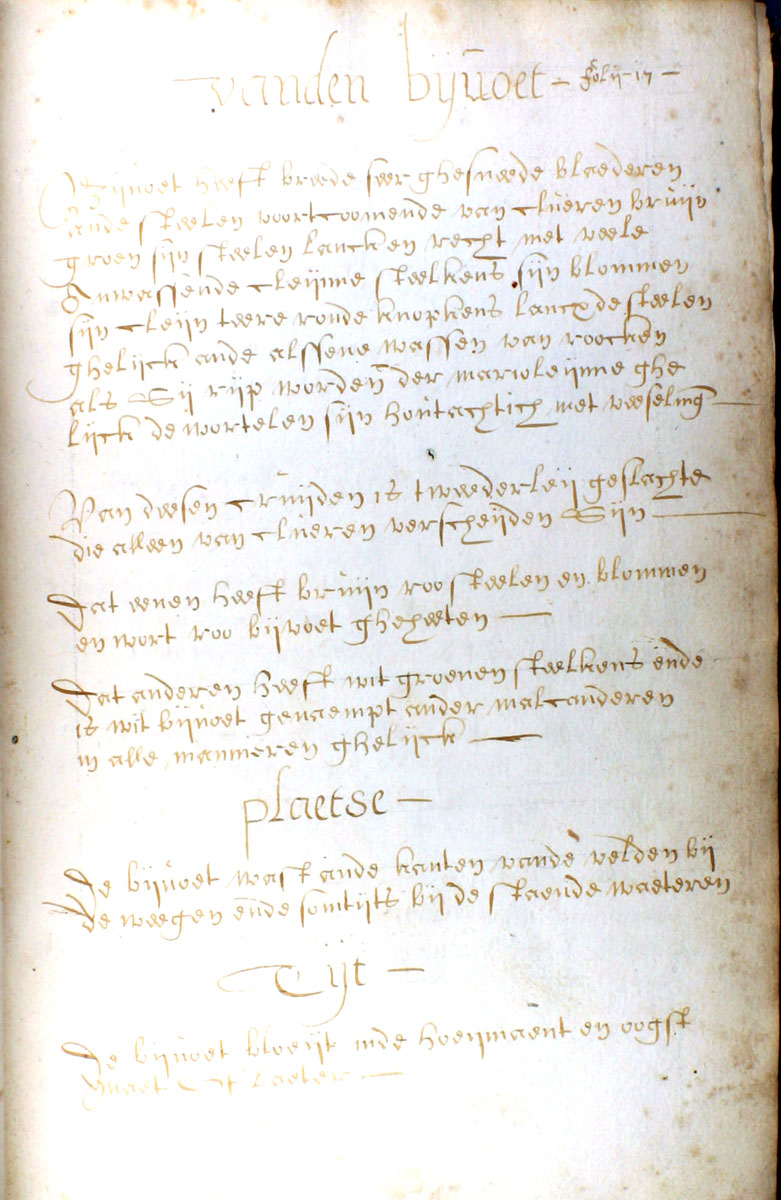 vanden bijvoet – folij 17 –
Bijvoet heeft breede seer ghesneede blaederen
ande steelen voortcoomende van clueren bruijn
groen sijn steelen lanck en recht met veele
Anwassende cleijnne steelkens sijn blommen
sijn cleijn teere ronde knopkens lancx de steelen
ghelijck ande alssene wassen van roocken
als Sij rijp worden der marioleijnne ghe
lijck de wortelen sijn houtachtich met veeseling
Van deesen cruijden is tweederleij geslachte
die alleen van clueren verscheijden Sijn
Dat eenen heeft bruijn roo steelen en blommen
en wort roo bijvoet gheheeten
Dat anderen heeft wit groenen steelkens ende
is wit bijvoet genaempt ander malcanderen
in alle mannieren ghelijck
plaetse –
De bijvoet wast ande kanten vande velden bij
de weegen ende somtijts bij de staende waeteren
Tijt –
De bijvoet bloeijt inde hoeijmaent en oogst
maet Oft laeter –